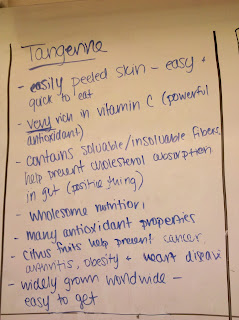 Tangerine
- easily peeled skin - easy +
quick to eat
- very rich in vitamin C (powerful
antioxidant)
- contains soluable/insoluable fibers,
help prevent cholesterol absorption
in gut (positive thing)
- wholesome nutrition,
- many antioxidant properties
- citrus fruits help prevent cancer,
arthritis, obesity + heart
- widely grown worldwide -
easy to get